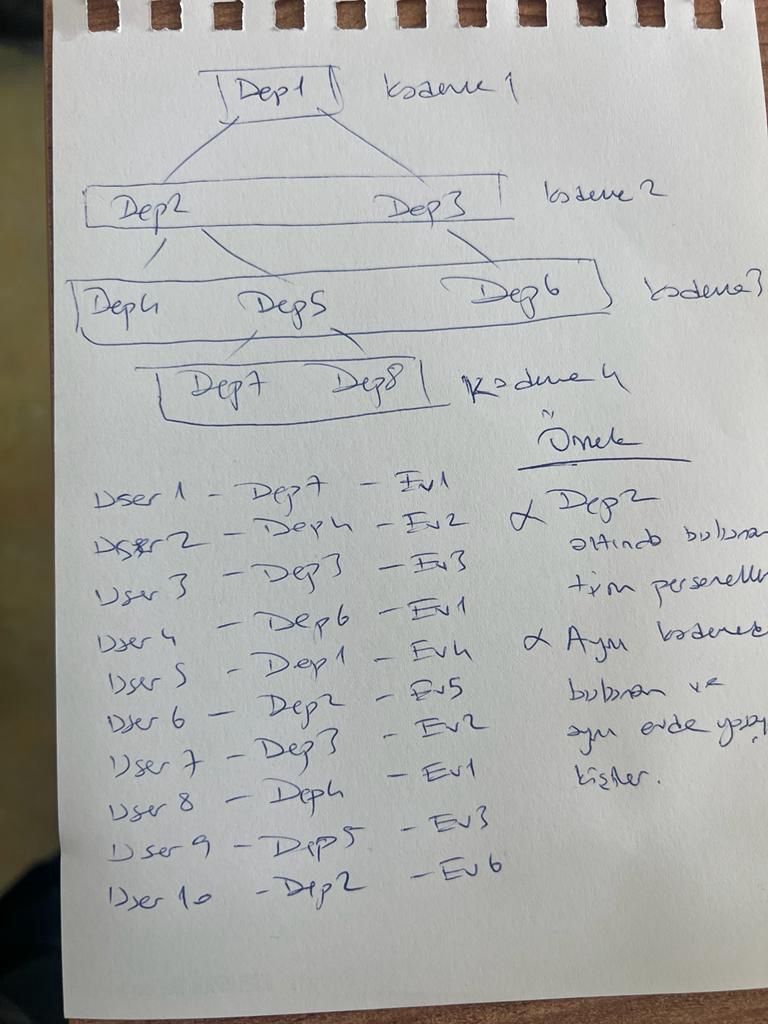 Dep1 Kademe 1
Dep2 Dep3 kademe 2
Dep4 Dep5 Dep6 kademe 3
Dep7 Dep8 Kademe 4
Örnek
User 1 - Dep7 - Ev1
User 2 - Dep4 - Ev2
User 3 - Dep3 - Ev3
User 4 - Dep6 - Ev1
User 5 - Dep1 - Ev4
User 6 - Dep2 - Ev5
User 7 - Dep3 - Ev2
User 8 - Dep4 - Ev1
User 9 - Dep5 - Ev3
User 10 - Dep2 - Ev6
Dep2
altında bulunan
tüm personeller
Aynı kademede
bulunan ve
aynı evde yaşay
kişiler.